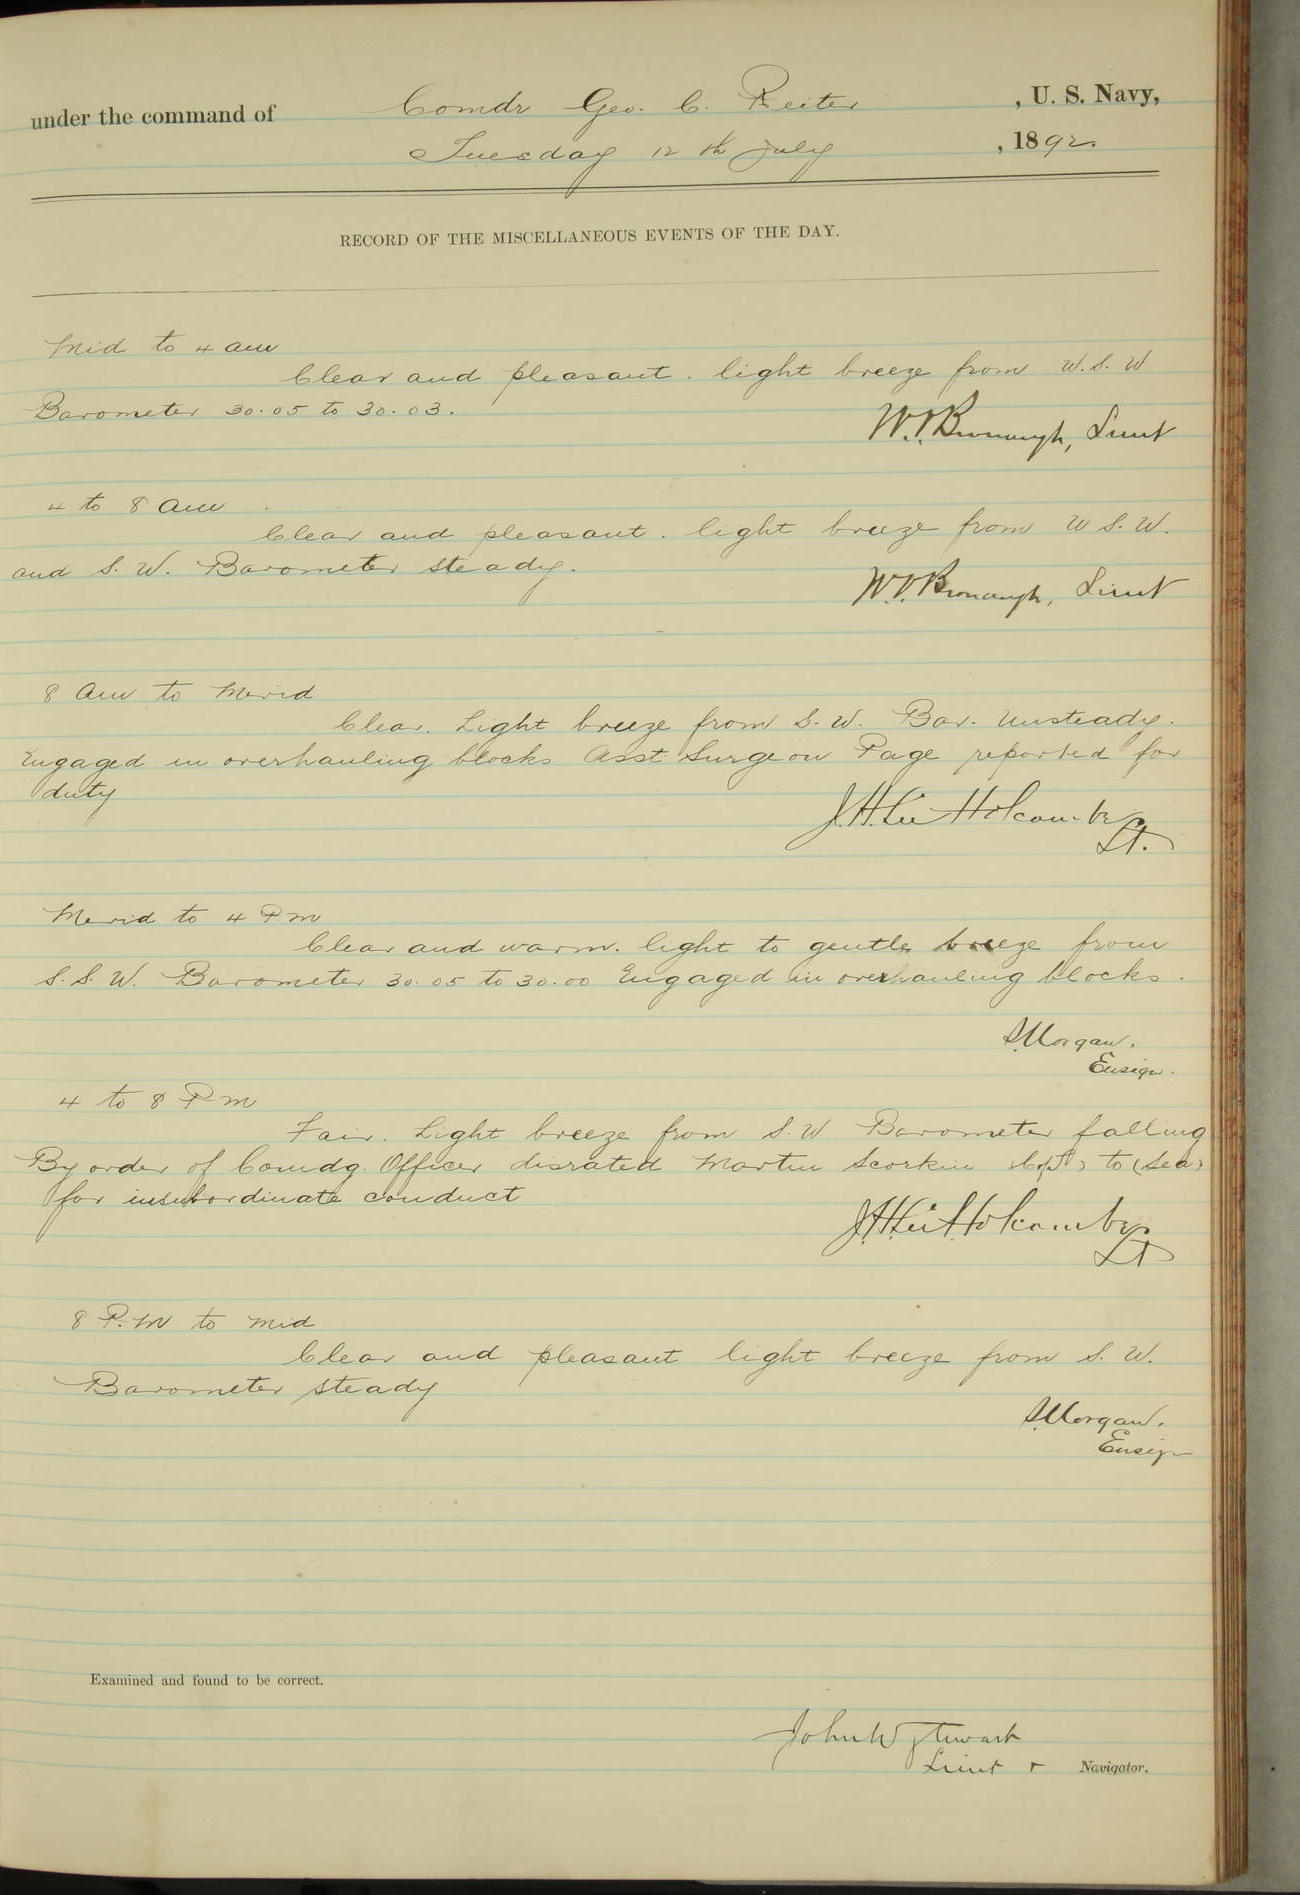 under the command of Comdr Geo. C. Reiter, U. S. Navy,
Tuesday 12th July, 1892.
RECORD OF THE MISCELLANEOUS EVENTS OF THE DAY.
Mid to 4 am
Clear and pleasant. light breeze from W.S.W
Barometer 30.05 to 30.03.
W.V. Bronaugh, Lieut
4 to 8 am
Clear and pleasant. light breeze from W S.W.
and S. W. Barometer steady.
W.V. Bronaugh, Lieut
8 am to Merid
Clear. Light breeze from S. W. Bar. Unsteady.
Engaged in overhauling blocks Asst Surgeon Page reported for
duty
J.H. Lee Holcombe
Lt.
Merid to 4 P.m
Clear and warm. light to gentle breeze from
S. S. W. Barometer 30.05 to 30.00 Engaged in overhauling blocks.
S. Morgan.
Ensign.
4 to 8 P m
Fair. Light breeze from S. W Barometer falling
By order of Comdg. Officer disrated Martin to (Sea)
for insubordinate conduct
J.H. Lee Holcombe
Lt
8 P.M to Mid
Clear and pleasant light breeze from S. W.
Barometer steady
S. Morgan.
Ensign
Examined and found to be correct.
John W Stewart
Lieut & Navigator.